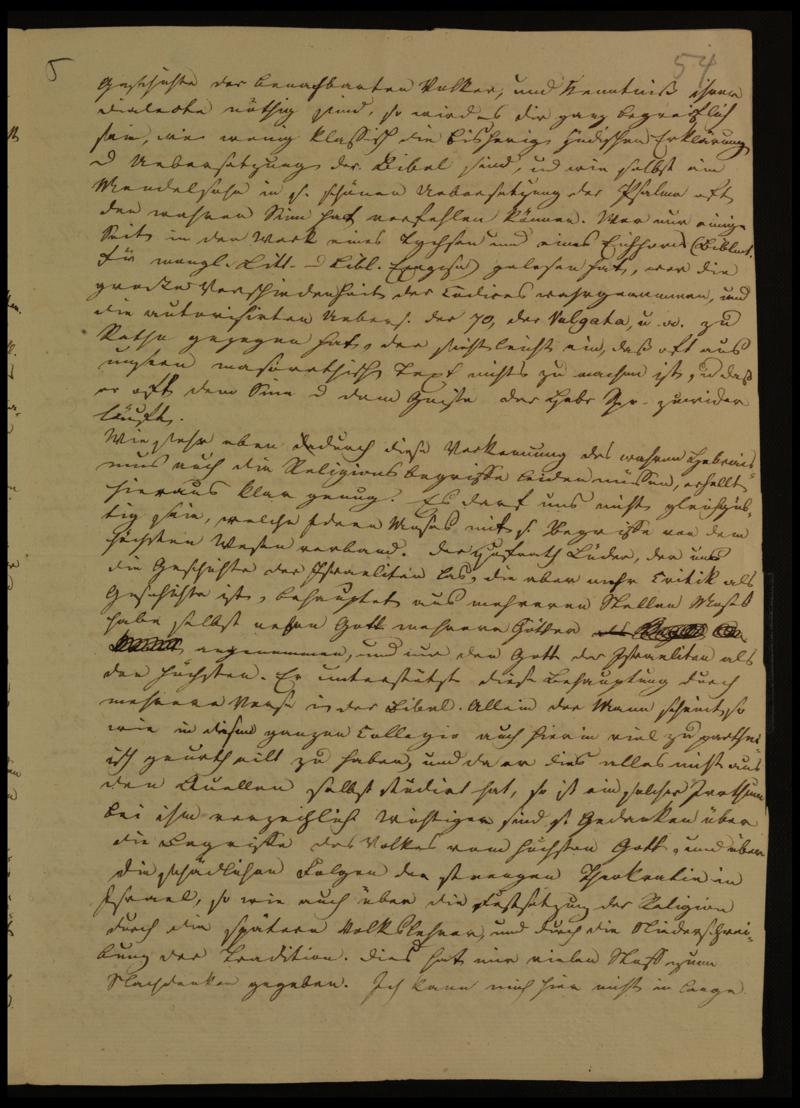 5 54
Geschichte der benachbarten Völker, und Kenntniß ihrer
Dialecte nöthig sind, so wird es dir ganz begreiflich
sein, wie wenig klassisch die bisherig. jüdischen Erklärung.
u Uebersetzung. der Bibel sind, und wie selbst ein
Mendelsohn in s. schönen Uebersetzung der Psalme oft
den wahren Sinn hat verfehlen können. Wer nur einige
Seiten in den Werk eines Tychsen und eines Eichhorns (Biblioth.
für morgl. Litt. u Bibl. Exegese) gelesen hat, wer die
große Verschiedenheit der Codices wahrgenommen, und
die autorisirten Uebers. der 70, der Vulgata, u. a. zu
Rathe gezogen hat, der sieht leicht ein, daß oft aus
unserm masorethisch. Text nichts zu machen ist, u daß
er oft dem Sinn u dem Geiste der Hebr. Spr. zuwider
läuft.
Wie sehr aber dadurch diese Verkennung des wahren Hebrais-
mus auch die Religionsbegriffe leiden müssen, erhellt
hieraus klar genug. Es darf uns nicht gleichgül-
tig sein, welche Ideen Moses mit s. Begriffe von dem
höchsten Wesen verband. Der Hofrath Lüder, der uns
die Geschichte der Israeliten las, die aber mehr Critik als
Geschichte ist, behauptet aus mehreren Stellen Moses
habe selbst neben Gott mehrere Götter
angenommen, und nur den Gott der Israeliten als
den höchsten. Er unterstützt diese Behauptung durch
mehrere Verse in der Bibel. Allein der Mann scheint, so
wie in diesem ganzen Collegio auch hierin viel zu parthei-
isch geurtheilt zu haben, und da er dies alles nicht aus
den Quellen selbst studirt hat, so ist ein solcher Irrthum
bei ihm verzeihlich. Wichtiger sind s. Gedanken über
die Begriffe des Volkes vom höchsten Gott, und über
die schädlichen Folgen der strengen Theokratie in
Israel, so wie auch über die Festsetzung der Religion
durch die spätern Volkslehrer, und durch die Niederschrei-
bung der Tradition. Dies hat mir vielen Stoff zum
Nachdenken gegeben. Ich kann mich hier nicht in lange